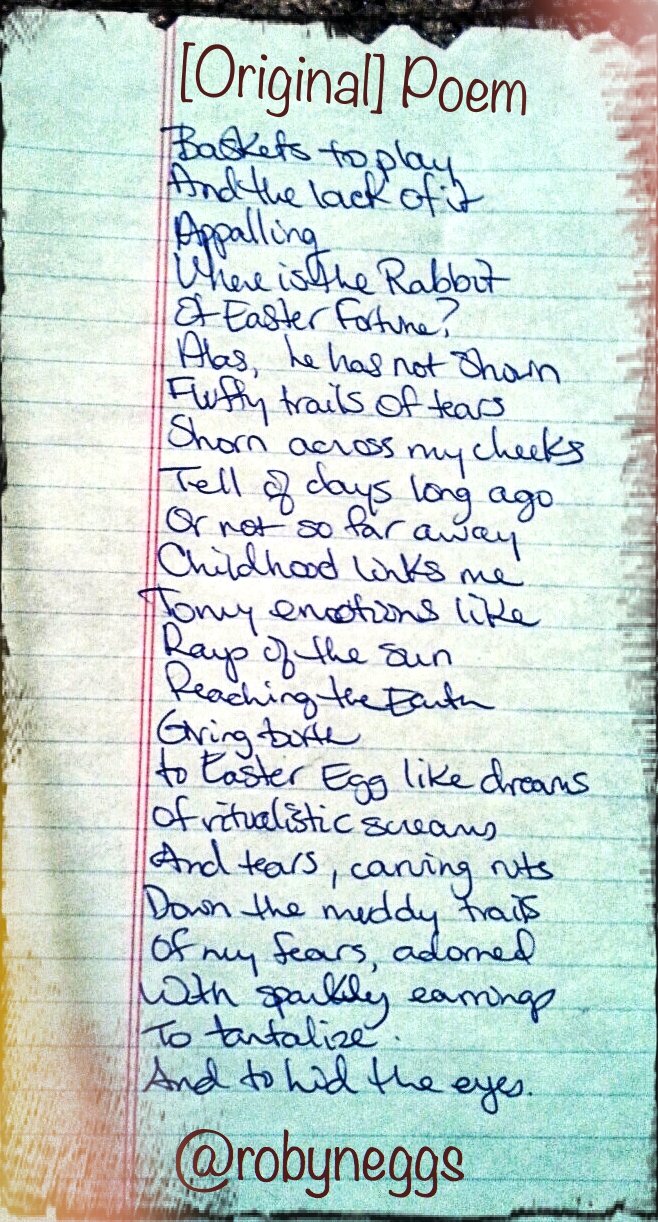 [Original] Poem
Baskets to play
And the lack of it
Appalling
Where is the Rabbit
Of Easter Fortune?
Alas, he has not shown
Fluffy trails of tears
Shorn across my cheeks
Tell of days long ago
Or not so far away
Childhood links me
To my emotions like
Rays of the sun
Reaching the Earth
Giving birth
to Easter Egg like dreams
of ritualistic screams
And tears, carving ruts
Down the muddy trails
Of my fears, adorned
With sparkly earrings
To tantalize.
And to hid the eyes.
@robyneggs